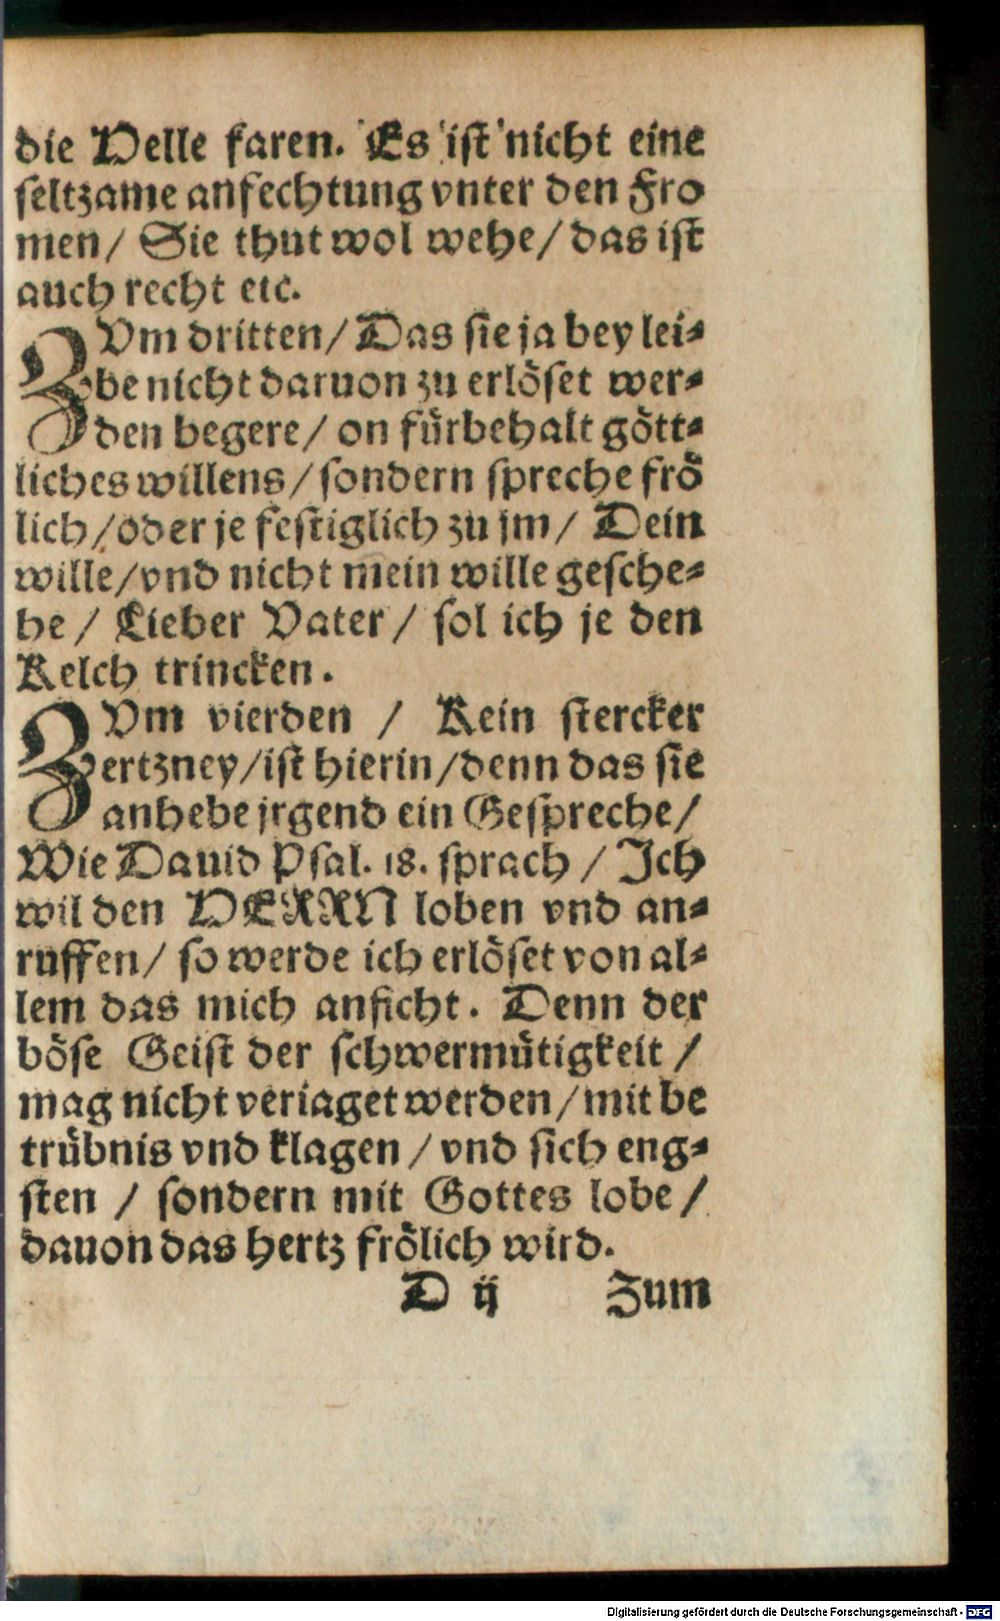 die Helle faren. Es ist nicht eine
seltzame anfechtung vnter den Fro
men/ Sie thut wol wehe/ das ist
auch recht etc.
ZVm dritten/ Das sie ja bey lei⸗
be nicht daruon zu erlöset wer⸗
den begere/ on fürbehalt gött⸗
liches willens/ sondern spreche frö
lich/ oder je festiglich zu jm/ Dein
wille/ vnd nicht mein wille gesche⸗
he/ Lieber Vater/ sol ich je den
Kelch trincken.
ZVm vierden / Kein stercker
ertzney/ ist hierin/ denn das sie
anhebe jrgend ein Gespreche/
Wie Dauid Psal. 18. sprach / Ich
wil den HERRN loben vnd an⸗
ruffen/ so werde ich erlöset von al⸗
lem das mich anficht. Denn der
böse Geist der schwermütigkeit /
mag nicht veriaget werden/ mit be
trübnis vnd klagen / vnd sich eng⸗
sten / sondern mit Gottes lobe/
dauon das hertz frölich wird.
D ij Zum
Digitalisierung gefördert durch die Deutsche Forschungsgemeinschaft - DFG